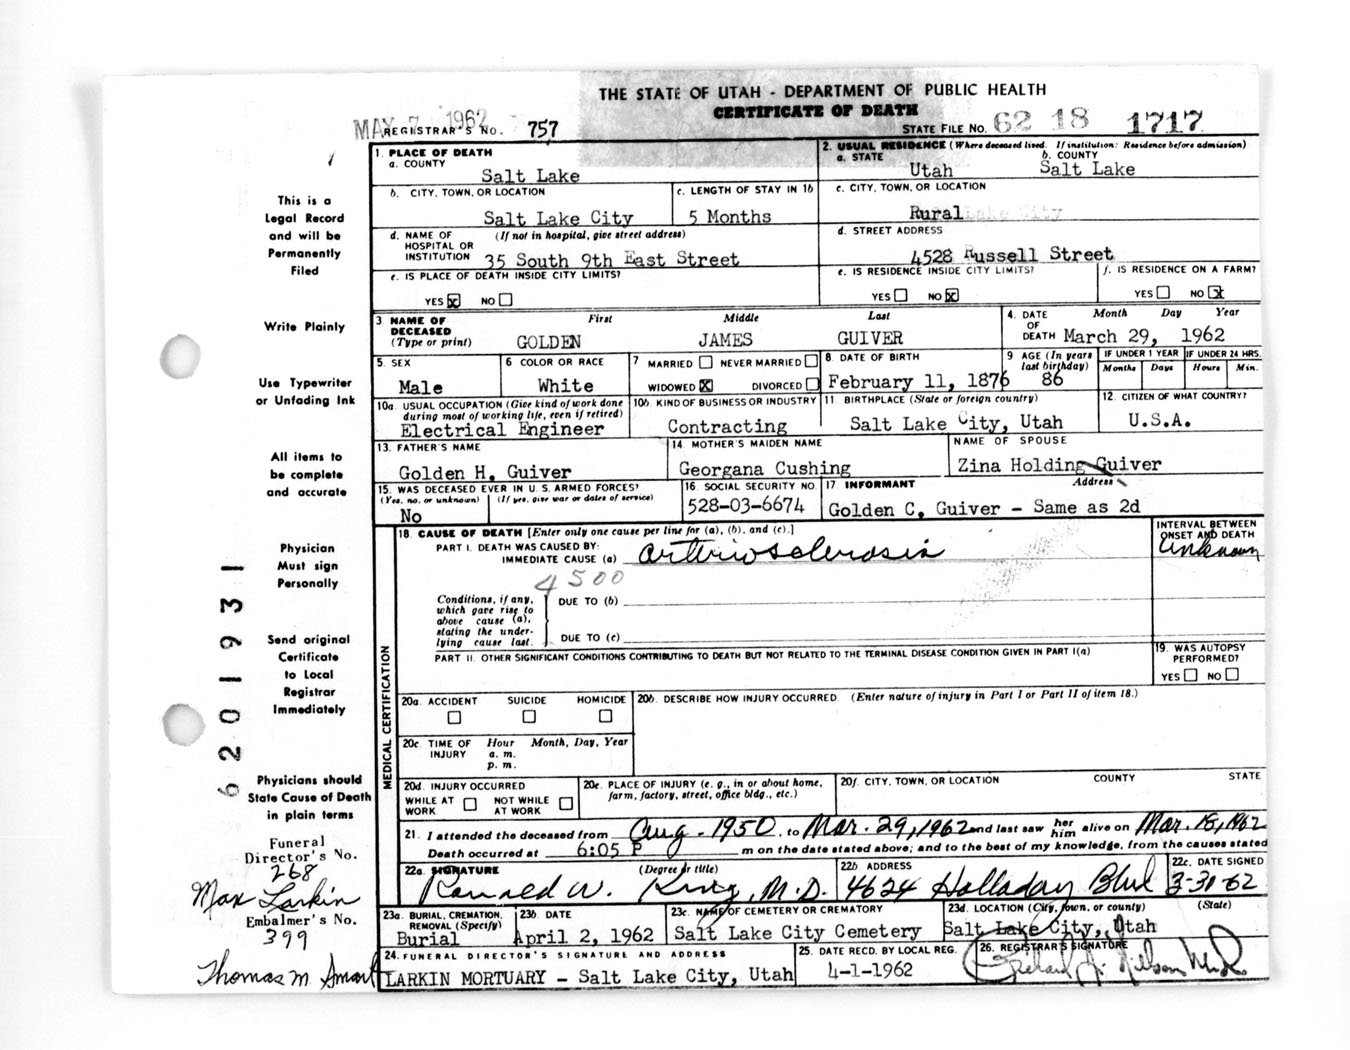 THE STATE OF UTAH - DEPARTMENT OF PUBLIC HEALTH
CERTIFICATE OF DEATH
MAY 7 1962
REGISTRAR'S NO. 757
STATE FILE NO. 62 18 1717
This is a
Legal Record
and will be
Permanently
Filed
Write Plainly
Use Typewriter
or Unfading Ink
All items to
be complete
and accurate
Physician
Must sign
Personally
Send original
Certificate
to Local
Registrar
Immediately
Physicians should
State Cause of Death
in plain terms
Funeral
Director's No.
268
Max Larkin
Embalmer's No.
399
Thomas M. Smart
6201931
1. PLACE OF DEATH
a. COUNTY
Salt Lake
2. USUAL RESIDENCE (Where deceased lived. If institution: Residence before admission)
a. STATE
Utah
b. COUNTY
Salt Lake
b. CITY, TOWN, OR LOCATION
Salt Lake City
c. LENGTH OF STAY IN 1b
5 Months
c. CITY, TOWN, OR LOCATION
Rural
d. NAME OF HOSPITAL OR INSTITUTION (If not in hospital, give street address)
35 South 9th East Street
d. STREET ADDRESS
4528 Russell Street
e. IS PLACE OF DEATH INSIDE CITY LIMITS?
YES x NO
e. IS RESIDENCE INSIDE CITY LIMITS?
YES NO x
f. IS RESIDENCE ON A FARM?
YES NO x
3 NAME OF DECEASED (Type or print)
First Middle Last
GOLDEN JAMES GUIVER
4. DATE OF DEATH
Month Day Year
March 29, 1962
5. SEX
Male
6 COLOR OR RACE
White
7 MARRIED NEVER MARRIED
WIDOWED X DIVORCED
8 DATE OF BIRTH
February 11, 1876
9 AGE (In years last birthday)
86
IF UNDER 1 YEAR
Months Days
IF UNDER 24 HRS.
Hours Min.
10a. USUAL OCCUPATION (Give kind of work done during most of working life, even if retired)
Electrical Engineer
10b. KIND OF BUSINESS OR INDUSTRY
Contracting
11. BIRTHPLACE (State or foreign country)
Salt Lake City, Utah
12. CITIZEN OF WHAT COUNTRY?
U.S.A.
13. FATHER'S NAME
Golden H. Guiver
14. MOTHER'S MAIDEN NAME
Georgana Cushing
NAME OF SPOUSE
Zina Holding Guiver
15. WAS DECEASED EVER IN U.S. ARMED FORCES?
(Yes, no, or unknown) (If yes, give war or dates of service)
No
16. SOCIAL SECURITY NO.
528-03-6674
17 INFORMANT Address
Golden C. Guiver - Same as 2d
18. CAUSE OF DEATH [Enter only one cause per line for (a), (b), and (c).]
PART I. DEATH WAS CAUSED BY:
IMMEDIATE CAUSE (a) arteriosclerosis
INTERVAL BETWEEN ONSET AND DEATH
Unknown
4500
Conditions, if any, which gave rise to above cause (a), stating the underlying cause last.
DUE TO (b)
DUE TO (c)
PART II. OTHER SIGNIFICANT CONDITIONS CONTRIBUTING TO DEATH BUT NOT RELATED TO THE TERMINAL DISEASE CONDITION GIVEN IN PART I(a)
19. WAS AUTOPSY PERFORMED?
YES NO
MEDICAL CERTIFICATION
20a. ACCIDENT SUICIDE HOMICIDE
20b. DESCRIBE HOW INJURY OCCURRED. (Enter nature of injury in Part I or Part II of item 18.)
20c. TIME OF INJURY
Hour Month, Day, Year
a. m.
p. m.
20d. INJURY OCCURRED
WHILE AT WORK NOT WHILE AT WORK
20e. PLACE OF INJURY (e. g., in or about home, farm, factory, street, office bldg., etc.)
20f. CITY, TOWN, OR LOCATION COUNTY STATE
21. I attended the deceased from Aug. 1950, to Mar. 29, 1962 and last saw her him alive on Mar. 18, 1962
Death occurred at 6:05 P m on the date stated above; and to the best of my knowledge, from the causes stated
22a. SIGNATURE (Degree or title)
Ronald W. King, M.D.
22b. ADDRESS
4624 Holladay Blvd
22c. DATE SIGNED
3-31-62
23a. BURIAL, CREMATION, REMOVAL (Specify)
Burial
23b. DATE
April 2, 1962
23c. NAME OF CEMETERY OR CREMATORY
Salt Lake City Cemetery
23d. LOCATION (City, town, or county) (State)
Salt Lake City, Utah
24. FUNERAL DIRECTOR'S SIGNATURE AND ADDRESS
LARKIN MORTUARY - Salt Lake City, Utah
25. DATE RECD. BY LOCAL REG.
4-1-1962
26. REGISTRAR'S SIGNATURE